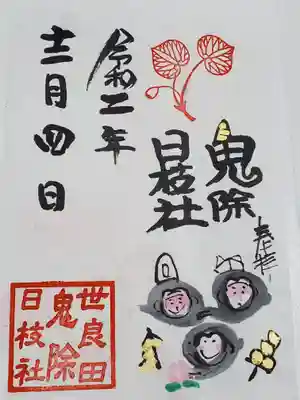 鬼除
日枝社
令和二年
十二月四日
世良田
鬼除
日枝社